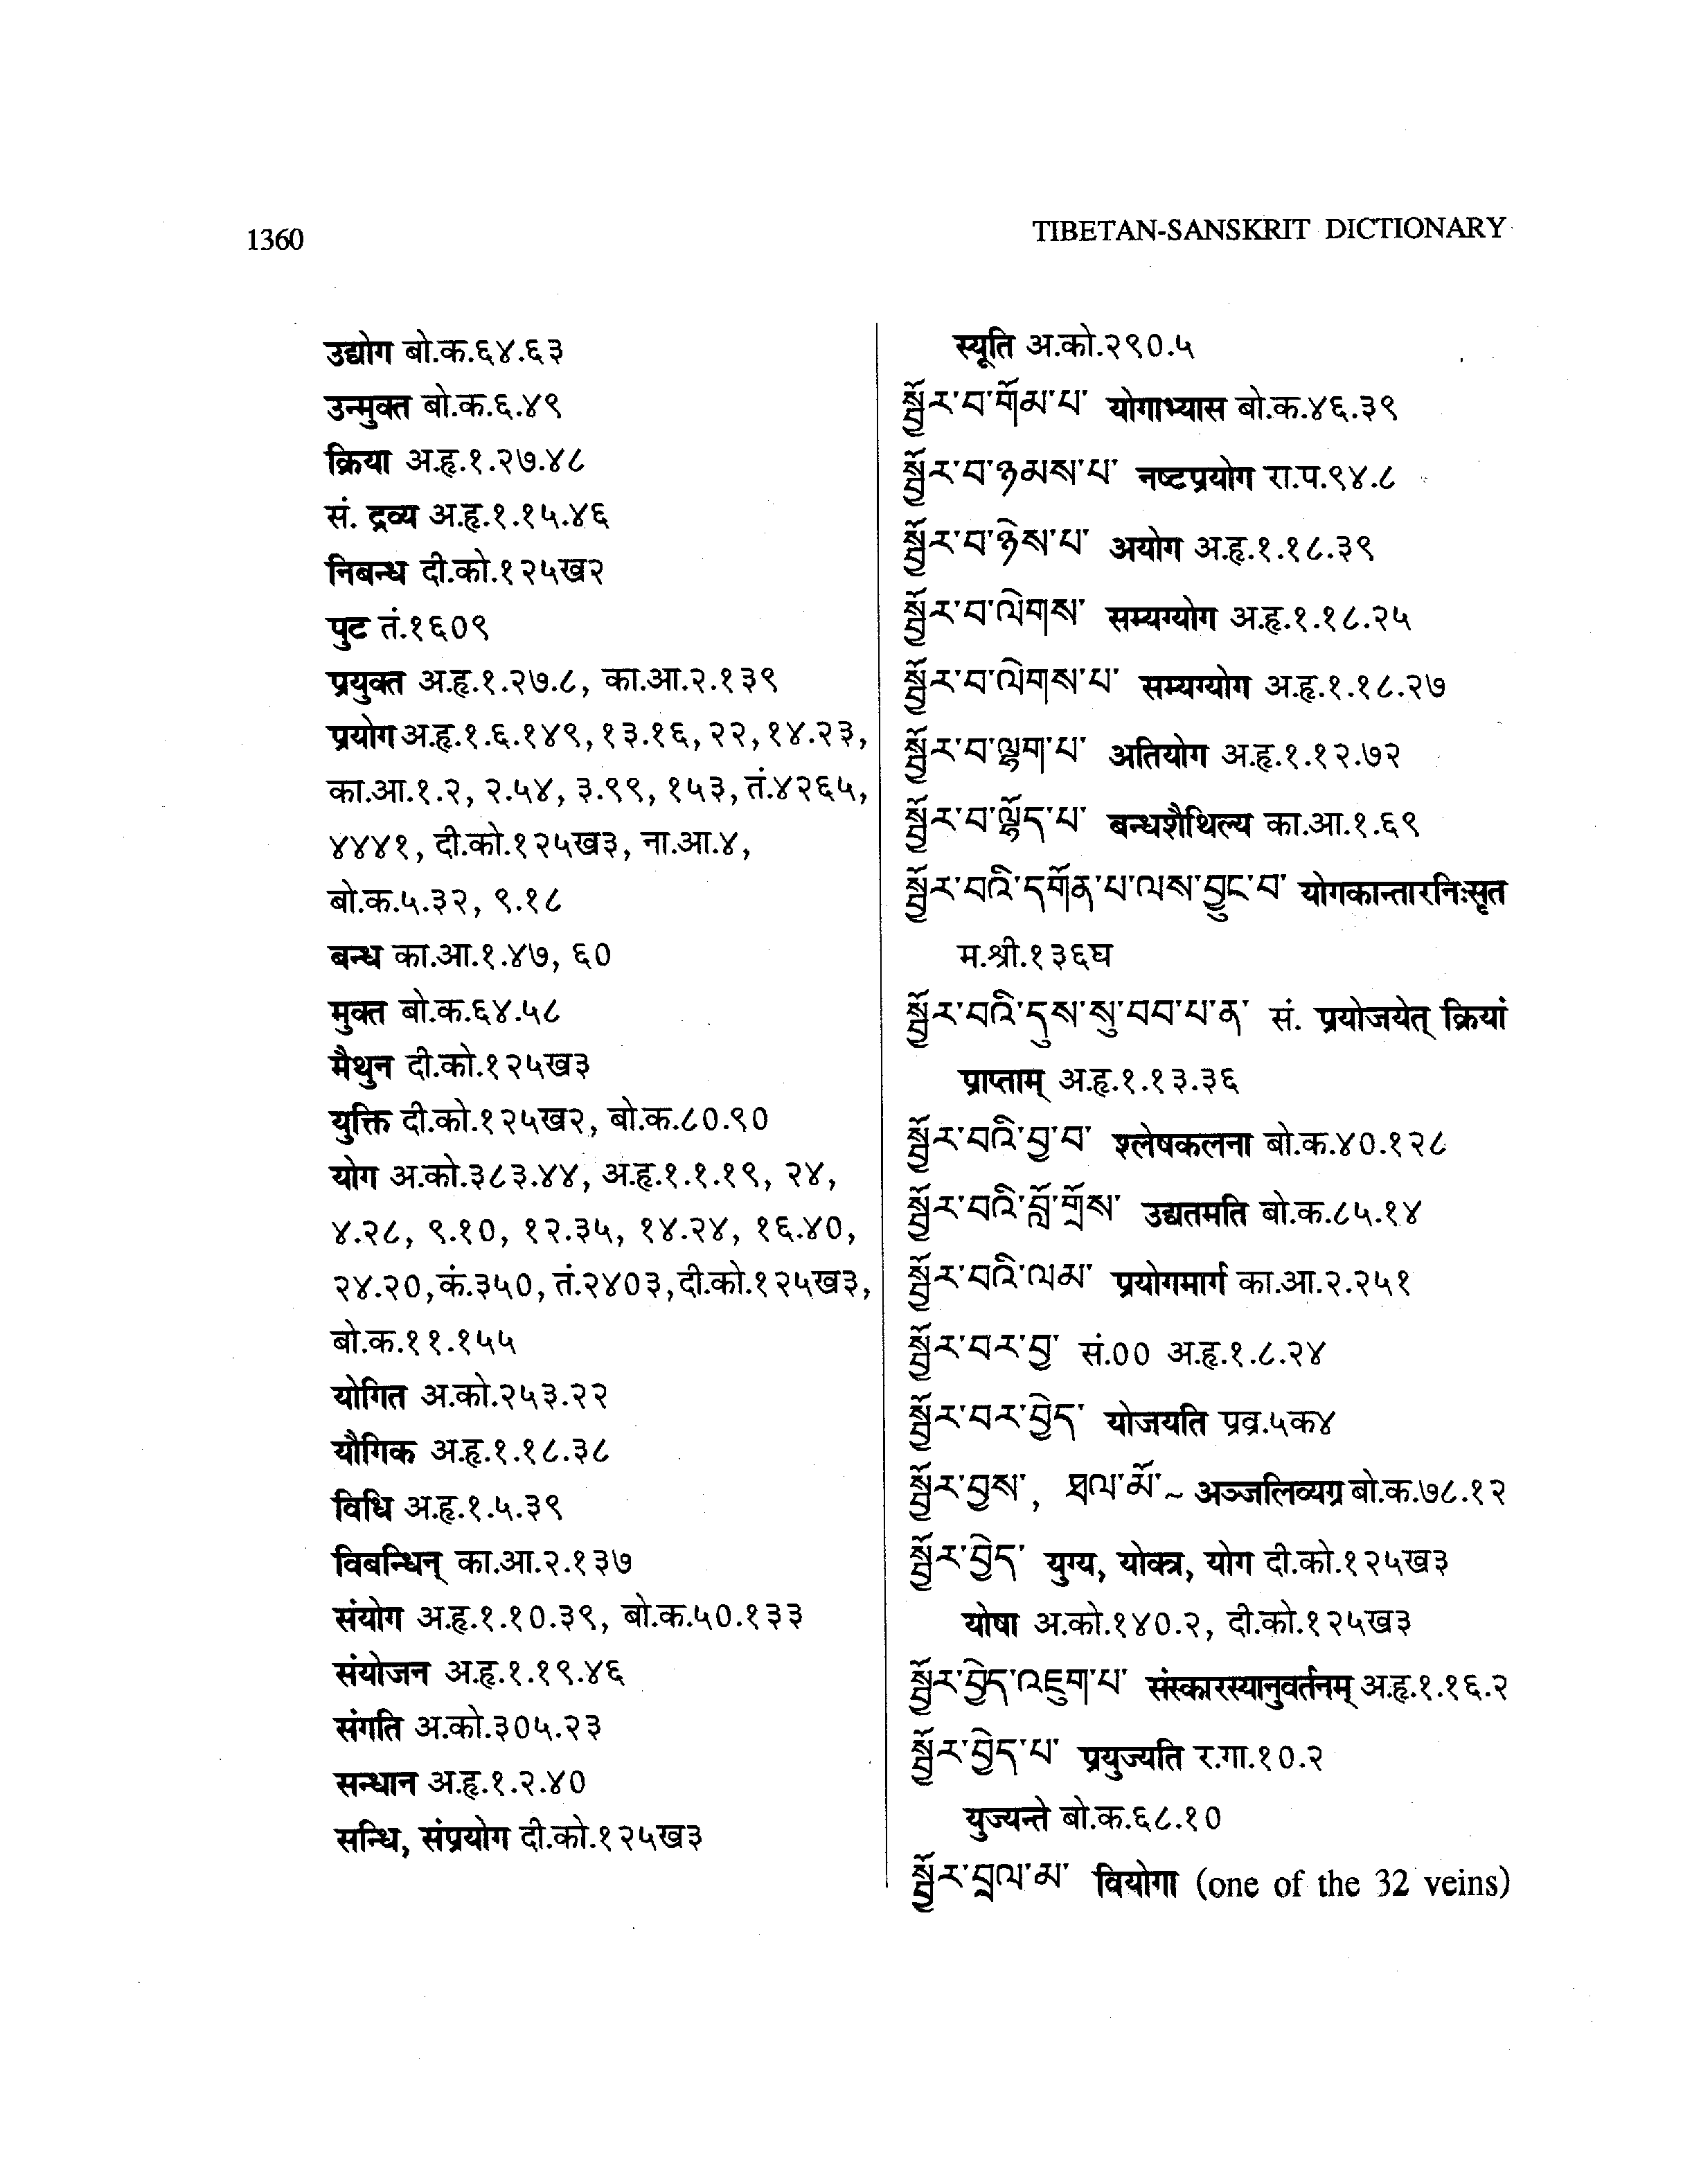 1360
TIBETAN-SANSKRIT DICTIONARY
उद्योग बो.क.६४.६३
उन्मुक्त बो.क.६.४९
क्रिया अ.हृ.१.२७.४८
सं. द्रव्य अ.हृ.१.१५.४६
निबन्ध दी.को.१२५ख२
पुट तं.१६०९
प्रयुक्त अ.हृ.१.२७.८, का.आ.२.१३९
प्रयोग अ.हृ.१.६.१४९, १३.१६, २२, १४.२३,
का.आ.१.२, २.५४, ३.९९, १५३, तं.४२६५,
४४४१, दी.को.१२५ख३, ना.आ.४,
बो.क.५.३२, ९.१८
बन्ध का.आ.१.४७, ६०
मुक्त बो.क.६४.५८
मैथुन दी.को.१२५ख३
युक्ति दी.को.१२५ख२, बो.क.८०.९०
योग अ.को.३८३.४४, अ.हृ.१.१.१९, २४,
४.२८, ९.१०, १२.३५, १४.२४, १६.४०,
२४.२०, कं.३५०, तं.२४०३, दी.को.१२५ख३,
बो.क.११.१५५
योगित अ.को.२५३.२२
यौगिक अ.हृ.१.१८.३८
विधि अ.हृ.१.५.३९
विबन्धिन् का.आ.२.१३७
संयोग अ.हृ.१.१०.३९, बो.क.५०.१३३
संयोजन अ.हृ.१.१९.४६
संगति अ.को.३०५.२३
सन्धान अ.हृ.१.२.४०
सन्धि, संप्रयोग दी.को.१२५ख३
स्यूति अ.को.२९०.५
སྦྱོར་བ་གོམ་པ་ योगाभ्यास बो.क.४६.३९
སྦྱོར་བ་ཉམས་པ་ नष्टप्रयोग रा.प.९४.८
སྦྱོར་བ་ཉེས་པ་ अयोग अ.हृ.१.१८.३९
སྦྱོར་བ་ལེགས་ सम्यग्योग अ.हृ.१.१८.२५
སྦྱོར་བ་ལེགས་པ་ सम्यग्योग अ.हृ.१.१८.२७
སྦྱོར་བ་ལྷག་པ་ अतियोग अ.हृ.१.१२.७२
སྦྱོར་བ་ལྷོད་པ་ बन्धशैथिल्य का.आ.१.६९
སྦྱོར་བའི་དགོན་པ་ལས་བྱུང་བ་ योगकान्तारनिःसृत
म.श्री.१३६घ
སྦྱོར་བའི་དུས་སུ་བབ་པ་ན་ सं. प्रयोजयेत् क्रियां
प्राप्ताम् अ.हृ.१.१३.३६
སྦྱོར་བའི་བྱ་བ་ श्लेषकलना बो.क.४०.१२८
སྦྱོར་བའི་བློ་གྲོས་ उद्यतमति बो.क.८५.१४
སྦྱོར་བའི་ལམ་ प्रयोगमार्ग का.आ.२.२५१
སྦྱོར་བར་བྱ་ सं.०० अ.हृ.१.८.२४
སྦྱོར་བར་བྱེད་ योजयति प्रव्र.५क४
སྦྱོར་བྱས་, ཐལ་མོ་~ अञ्जलिव्यग्र बो.क.७८.१२
སྦྱོར་བྱེད་ युग्य, योक्त्र, योग दी.को.१२५ख३
योषा अ.को.१४०.२, दी.को.१२५ख३
སྦྱོར་བྱེད་འཇུག་པ་ संस्कारस्यानुवर्तनम् अ.हृ.१.१६.२
སྦྱོར་བྱེད་པ་ प्रयुज्यति र.गा.१०.२
युज्यन्ते बो.क.६८.१०
སྦྱོར་བྲལ་མ་ वियोगा (one of the 32 veins)